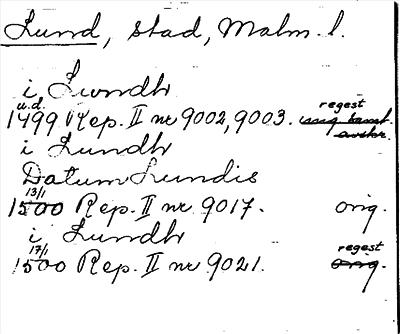 Lund, stad, Malm. l.
i Lundh
u.d. regest
1499 Rep. II nr 9002, 9003. orig. samt
avskr.
i Lundh
Datum Lundis
13/1
1500 Rep. II nr 9017. orig.
i Lundh
17/1 regest
1500 Rep. II nr 9021. orig.